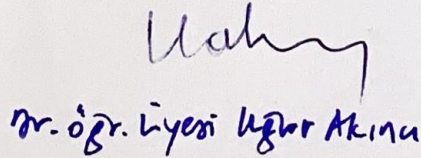 Dr. Öğr. Üyesi Uğur Akıncı